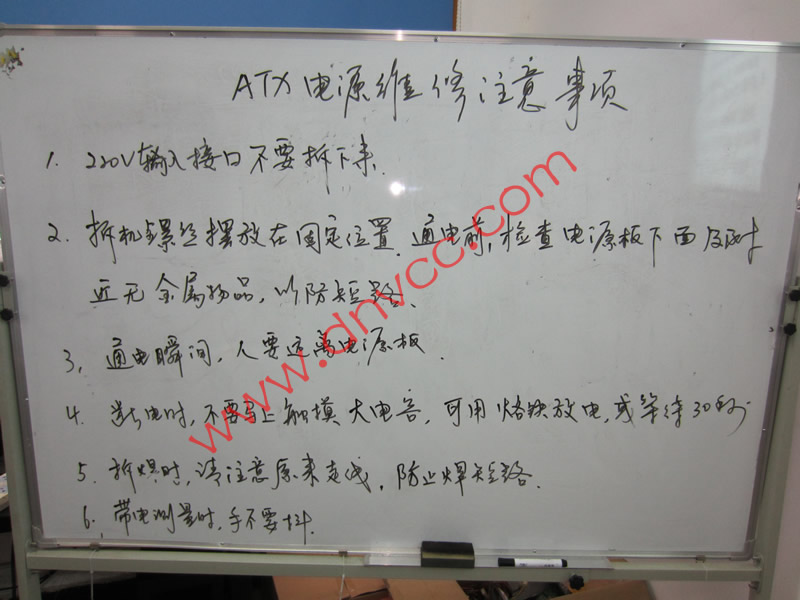 ATX电源维修注意事项
1. 220V输入接口不要拆下来.
2. 拆机螺丝摆放在固定位置.通电前,检查电源板下面及附
近无金属物品,以防短路、
3, 通电瞬间,人要远离电源板.
4. 断电时,不要马上触摸大电容,可用烙铁放电,或等待30秒
5. 拆焊时,请注意原来走线,防止焊短路.
6, 带电测量时,手不要抖.
www.dnvcc.com